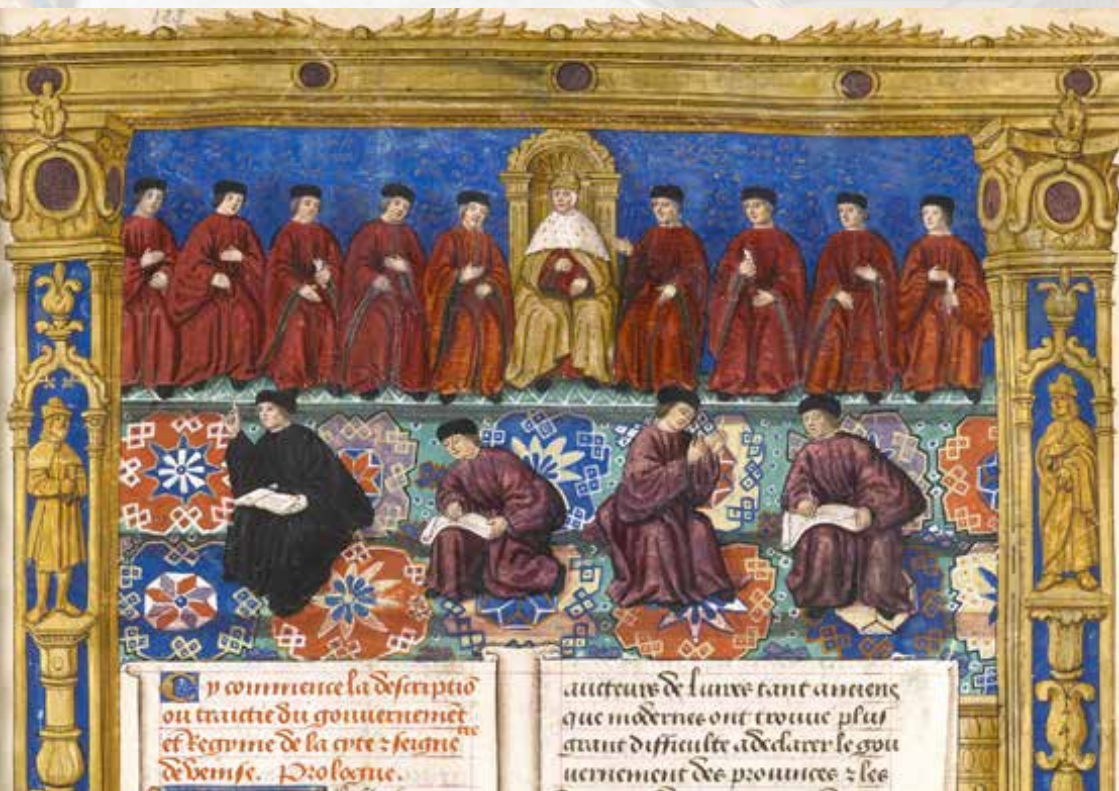 Cy commence la descriptiō
ou traictie du gouuernemēt
et Regyme de la cyte ⁊ seignerie
de Venise. Prologue.
aucteurs de liures tant anciens
que modernes ont trouue plus
grant difficulte a declarer le gou
uernement des prouinces ⁊ les